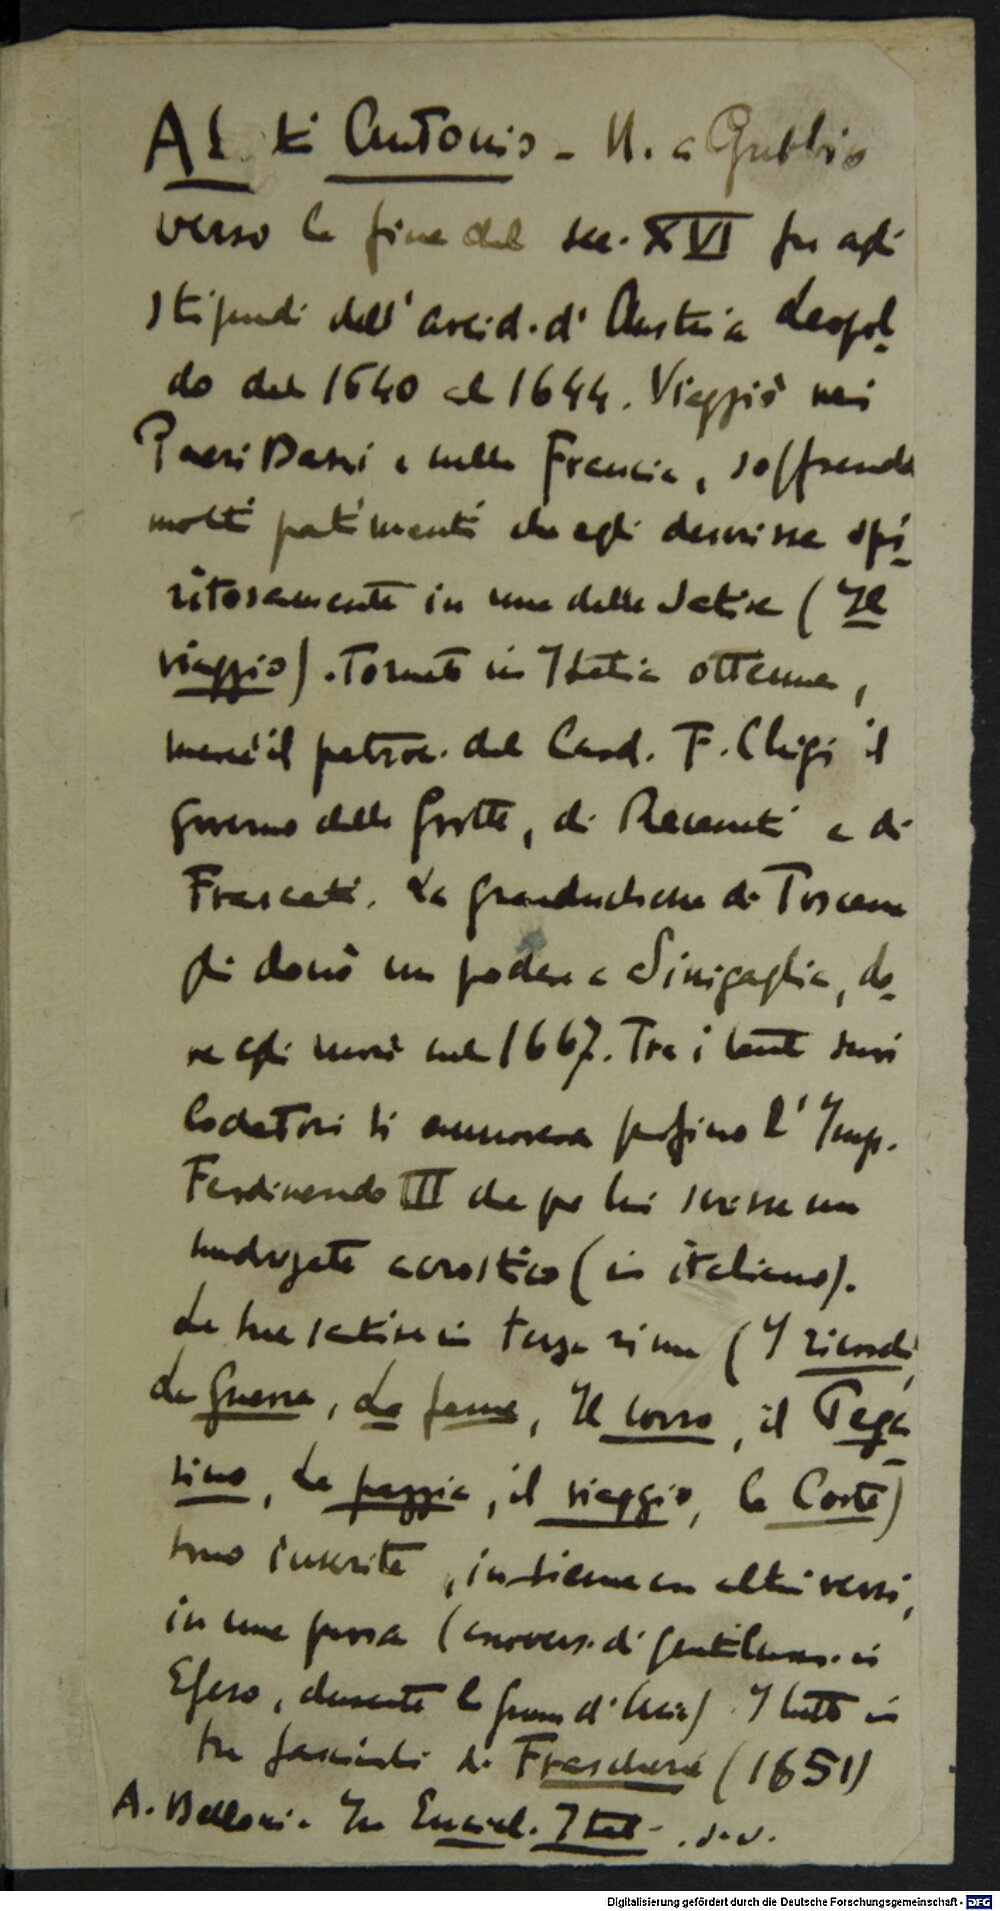 Ab ti Antonio - N. a Gubbio
verso la fine del sec. XVI fu agli
stipendi dell'arcid. d'Austria Leopol-
do dal 1640 al 1644. Viaggiò nei
Paesi Bassi e nella Francia, soffrendo
molti patimenti che egli descrisse spi-
ritosamente in una delle satire (Il
viaggio). Tornato in Italia ottenne,
mercè il patroc. del Card. F. Chigi il
governo delle Grotte, di Recanati e di
Frascati. La granduchessa di Toscana
gli donò un podere a Sinigaglia, do-
ve egli morì nel 1667. Tra i tanti suoi
lodatori si annovera perfino l'Imp.
Ferdinando III che per lui scrisse un
madrigale acrostico (in italiano).
Le sue satire in terza rima (I ricordi,
La guerra, La fame, Il corso, il Pega-
sino, La pazzia, il viaggio, la Corte)
sono inserite, insieme con altri versi,
in una prosa (convers. di gentiluom. in
Efeso, durante la guerra d'Asia). Il tutto in
tre fascicoli di Frascherie (1651)
A. Belloni. In Encicl. Ital. s. v.
Digitalisierung gefördert durch die Deutsche Forschungsgemeinschaft - DFG